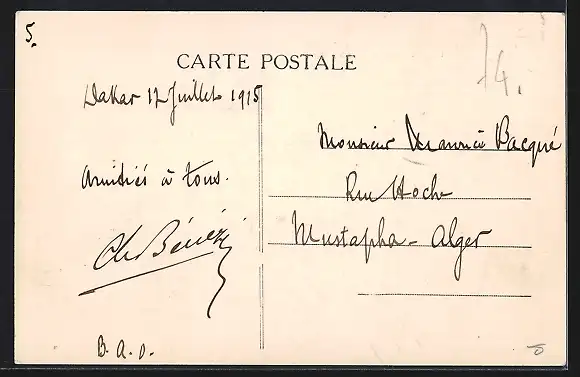 5.
74.
CARTE POSTALE
Dakar 12 Juillet 1915
Amitiés à tous.
Ch Bénézy
B. A. O.
Monsieur Maurice Bacqué
Rue Hoche
Mustapha - Alger